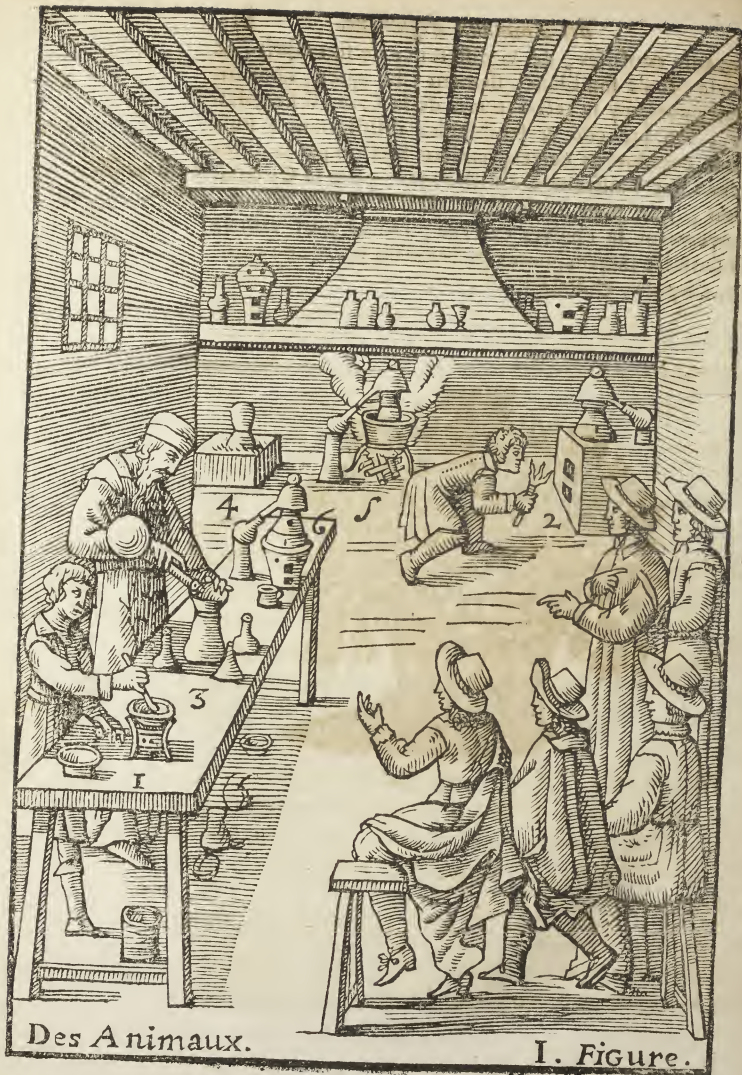 4 5 6 2
3
1
Des Animaux. I. Figure.